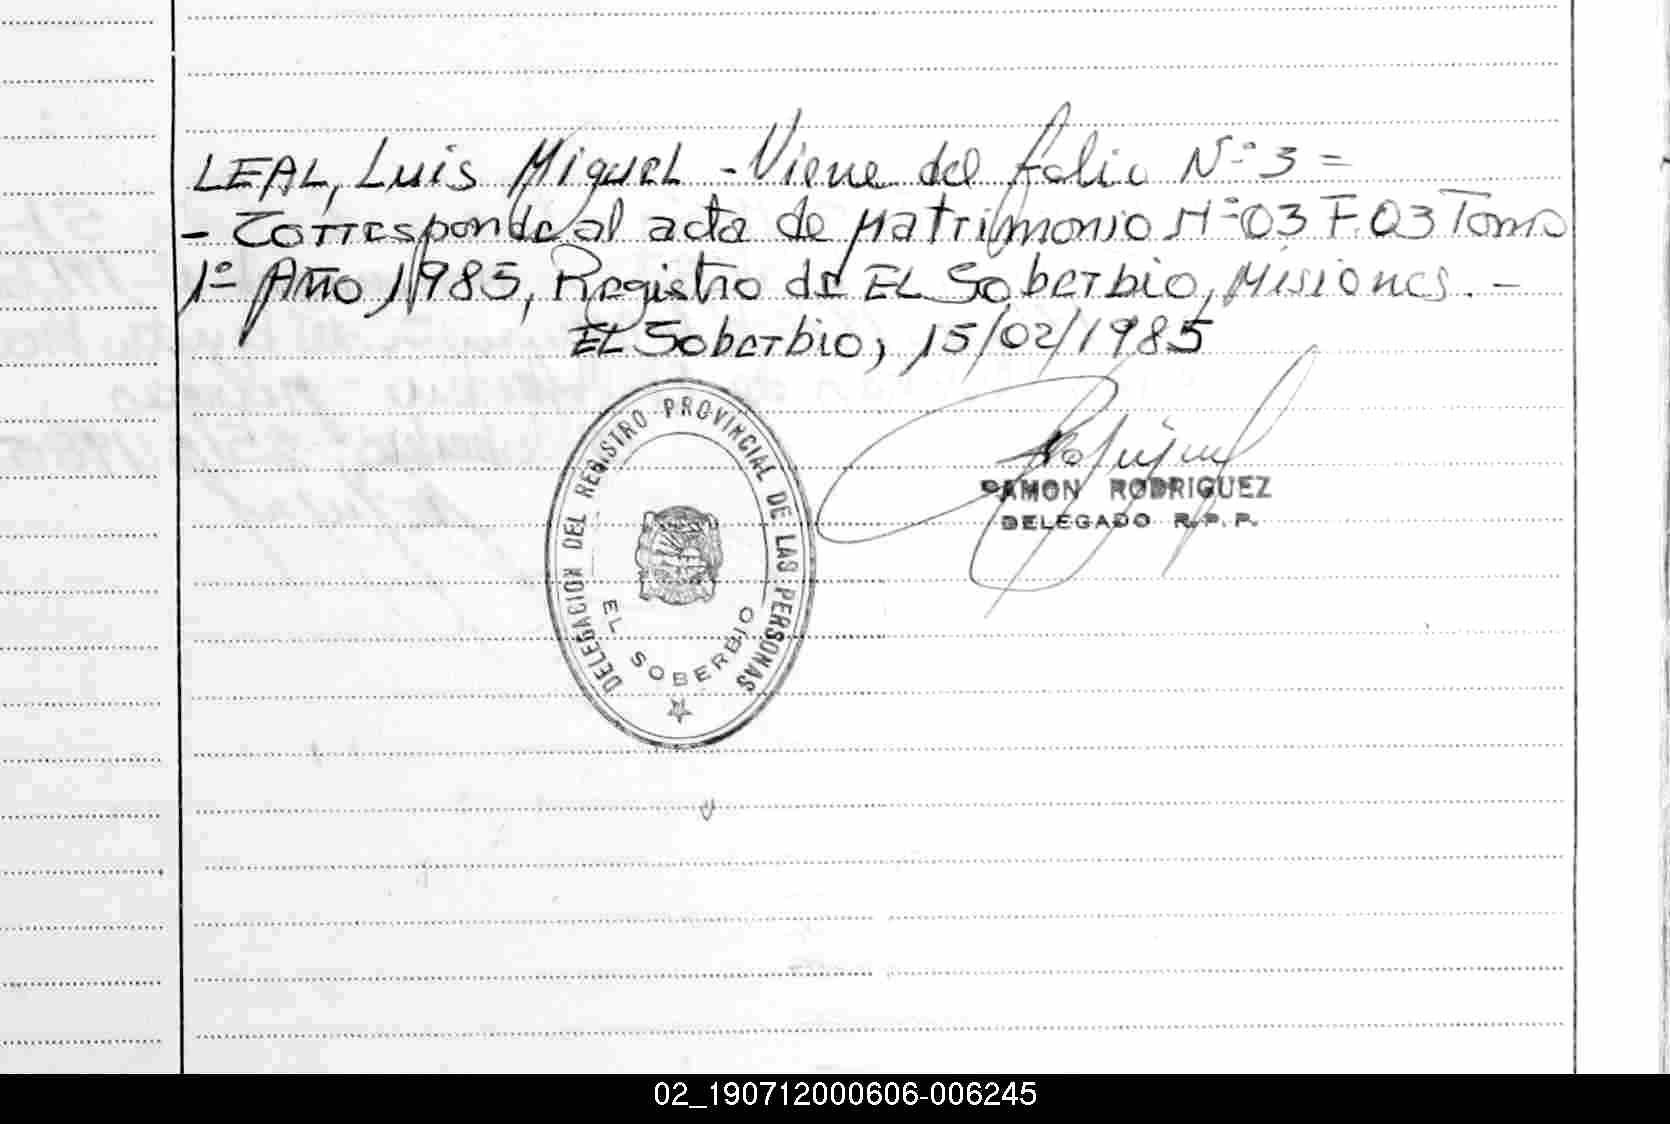 LEAL, Luis Miguel - Viene del folio Nº 3 =
- Corresponde al acta de matrimonio Nº 03 F. 03 Tomo
1º Año 1985, Registro de EL Soberbio, Misiones. -
EL Soberbio, 15/02/1985
DELEGACION DEL REGISTRO PROVINCIAL DE LAS PERSONAS
EL SOBERBIO
RAMON RODRIGUEZ
DELEGADO R.P.P.
02_190712000606-006245